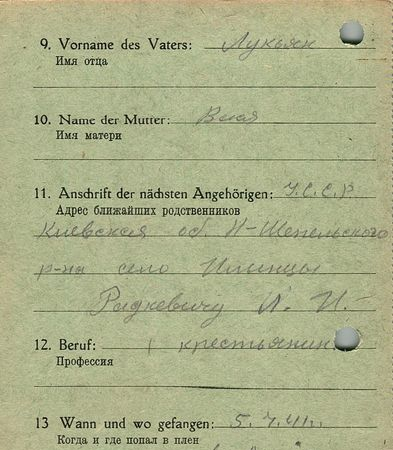 9. Vorname des Vaters: Лукьян
Имя отца
10. Name der Mutter:
Имя матери
11. Anschrift der nächsten Angehörigen: У.С.С.Р
Адрес ближайших родственников
Киевская об. Н-Шепельского
р-на село Илинцы
Радкевичу Л. И.
12. Beruf: крестьянин
Профессия
13 Wann und wo gefangen: 5.7.41г.
Когда и где попал в плен